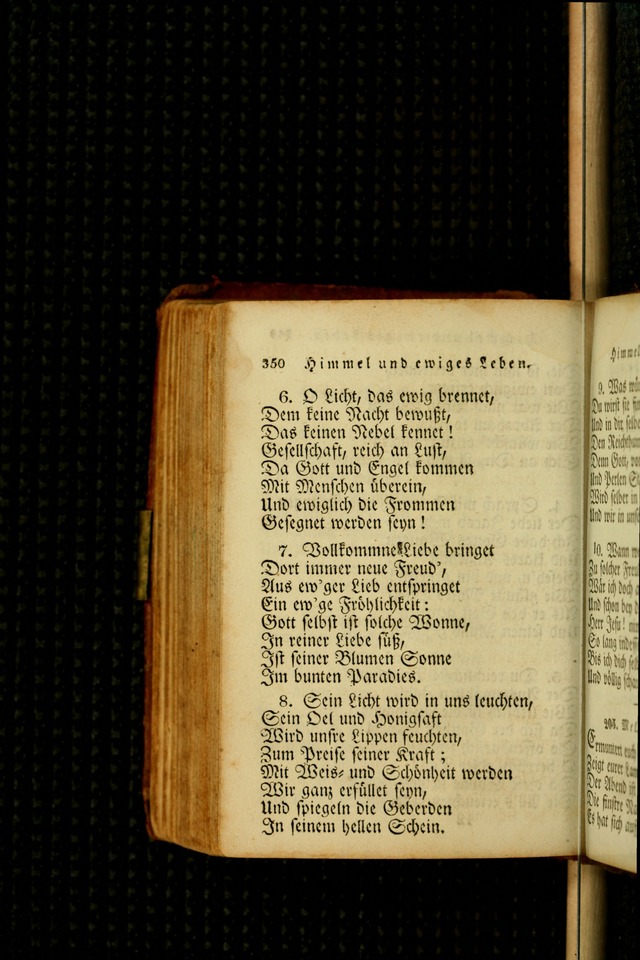 350 Himmel und ewiges Leben.
6. O Licht, das ewig brennet,
Dem keine Nacht bewußt,
Das keinen Nebel kennet!
Gesellschaft, reich an Lust,
Da Gott und Engel kommen
Mit Menschen überein,
Und ewiglich die Frommen
Gesegnet werden seyn!
7. Vollkommne Liebe bringet
Dort immer neue Freud',
Aus ew'ger Lieb entspringet
Ein ew'ge Fröhlichkeit:
Gott selbst ist solche Wonne,
In reiner Liebe süß,
Ist seiner Blumen Sonne
Im bunten Paradies.
8. Sein Licht wird in uns leuchten,
Sein Oel und Honigsaft
Wird unsre Lippen feuchten,
Zum Preise seiner Kraft;
Mit Weis- und Schönheit werden
Wir ganz erfüllet seyn,
Und spiegeln die Geberden
In seinem hellen Schein.
9. Was
Du wirst sie
Und in dir
Den
Denn Gott,
Und Perlen
Wird selber in
Und wir in
10. Wann
Zu solcher
Wär ich doch
Und schon bey
Herr Jesu!
So lang
Bis ich dich
Und völlig
Ermuntert euch
Zeigt eurer
Der Abend ist
Die finstre
Es hat sich